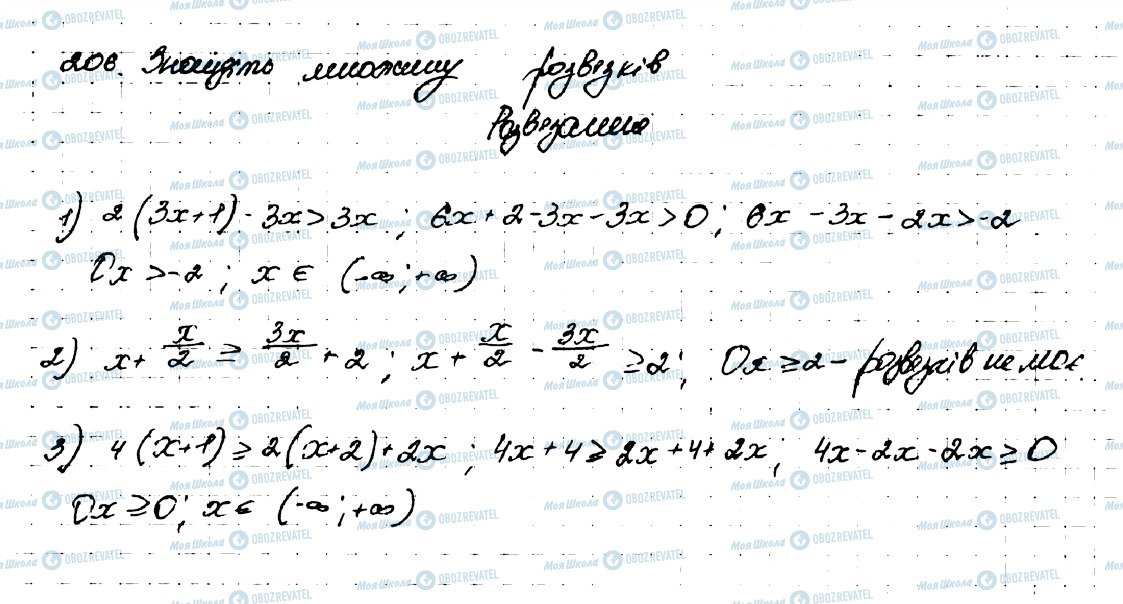 206. Знайдіть множину розв'язків
Розв'язання
1) 2(3x+1) - 3x > 3x ; 6x + 2 - 3x - 3x > 0 ; 6x - 3x - 2x > -2
0x > -2 ; x ∈ (-∞; +∞)
2) x + x/2 ≥ 3x/2 + 2 ; x + x/2 - 3x/2 ≥ 2 ; 0x ≥ 2 - розв'язків немає.
3) 4(x+1) ≥ 2(x+2) + 2x ; 4x + 4 ≥ 2x + 4 + 2x ; 4x - 2x - 2x ≥ 0
0x ≥ 0 ; x ∈ (-∞; +∞)
Моя Школа OBOZREVATEL